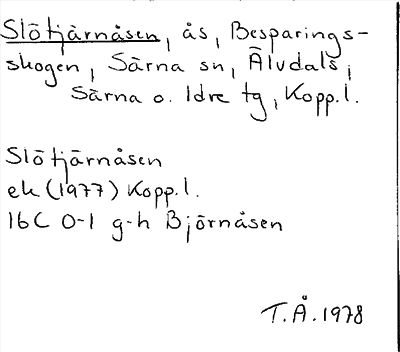 Slötjärnåsen, ås, Besparings-
skogen, Särna sn, Älvdals,
Särna o. Idre tg, Kopp.l.
Slötjärnåsen
ek (1977) Kopp.l.
16C 0-1 g-h Björnåsen
T.Å.1978